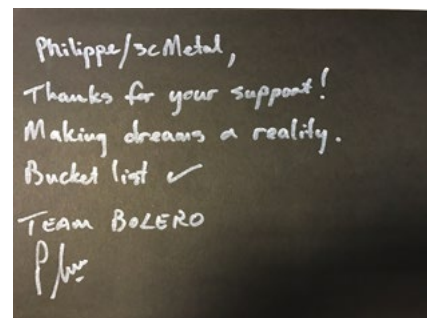 Philippe/3C Metal,
Thanks for your support!
Making dreams a reality.
Bucket list ✓
TEAM BOLERO